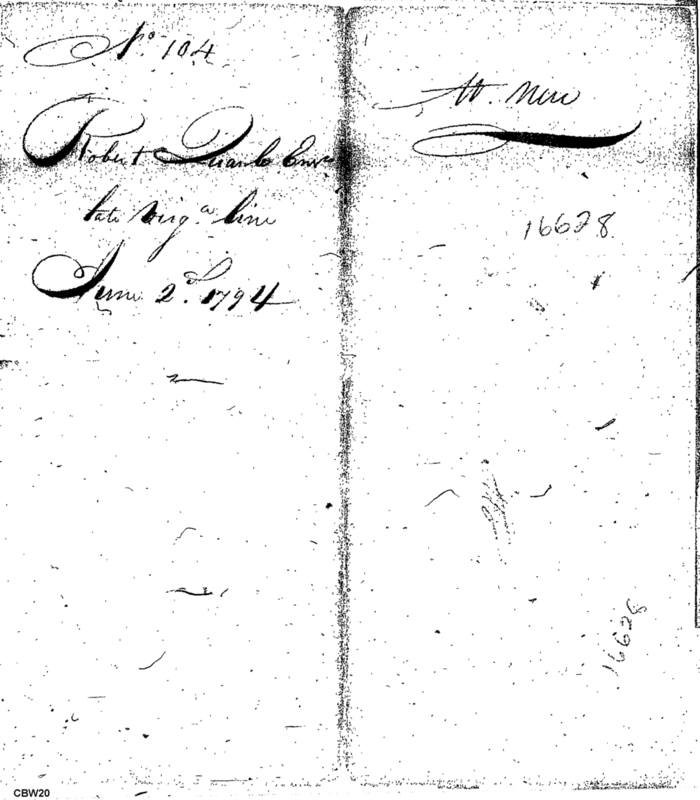 No. 104
Robert Quarles Ensn
late Virga line
June 2d. 1794
W.
16628
16628
CBW20